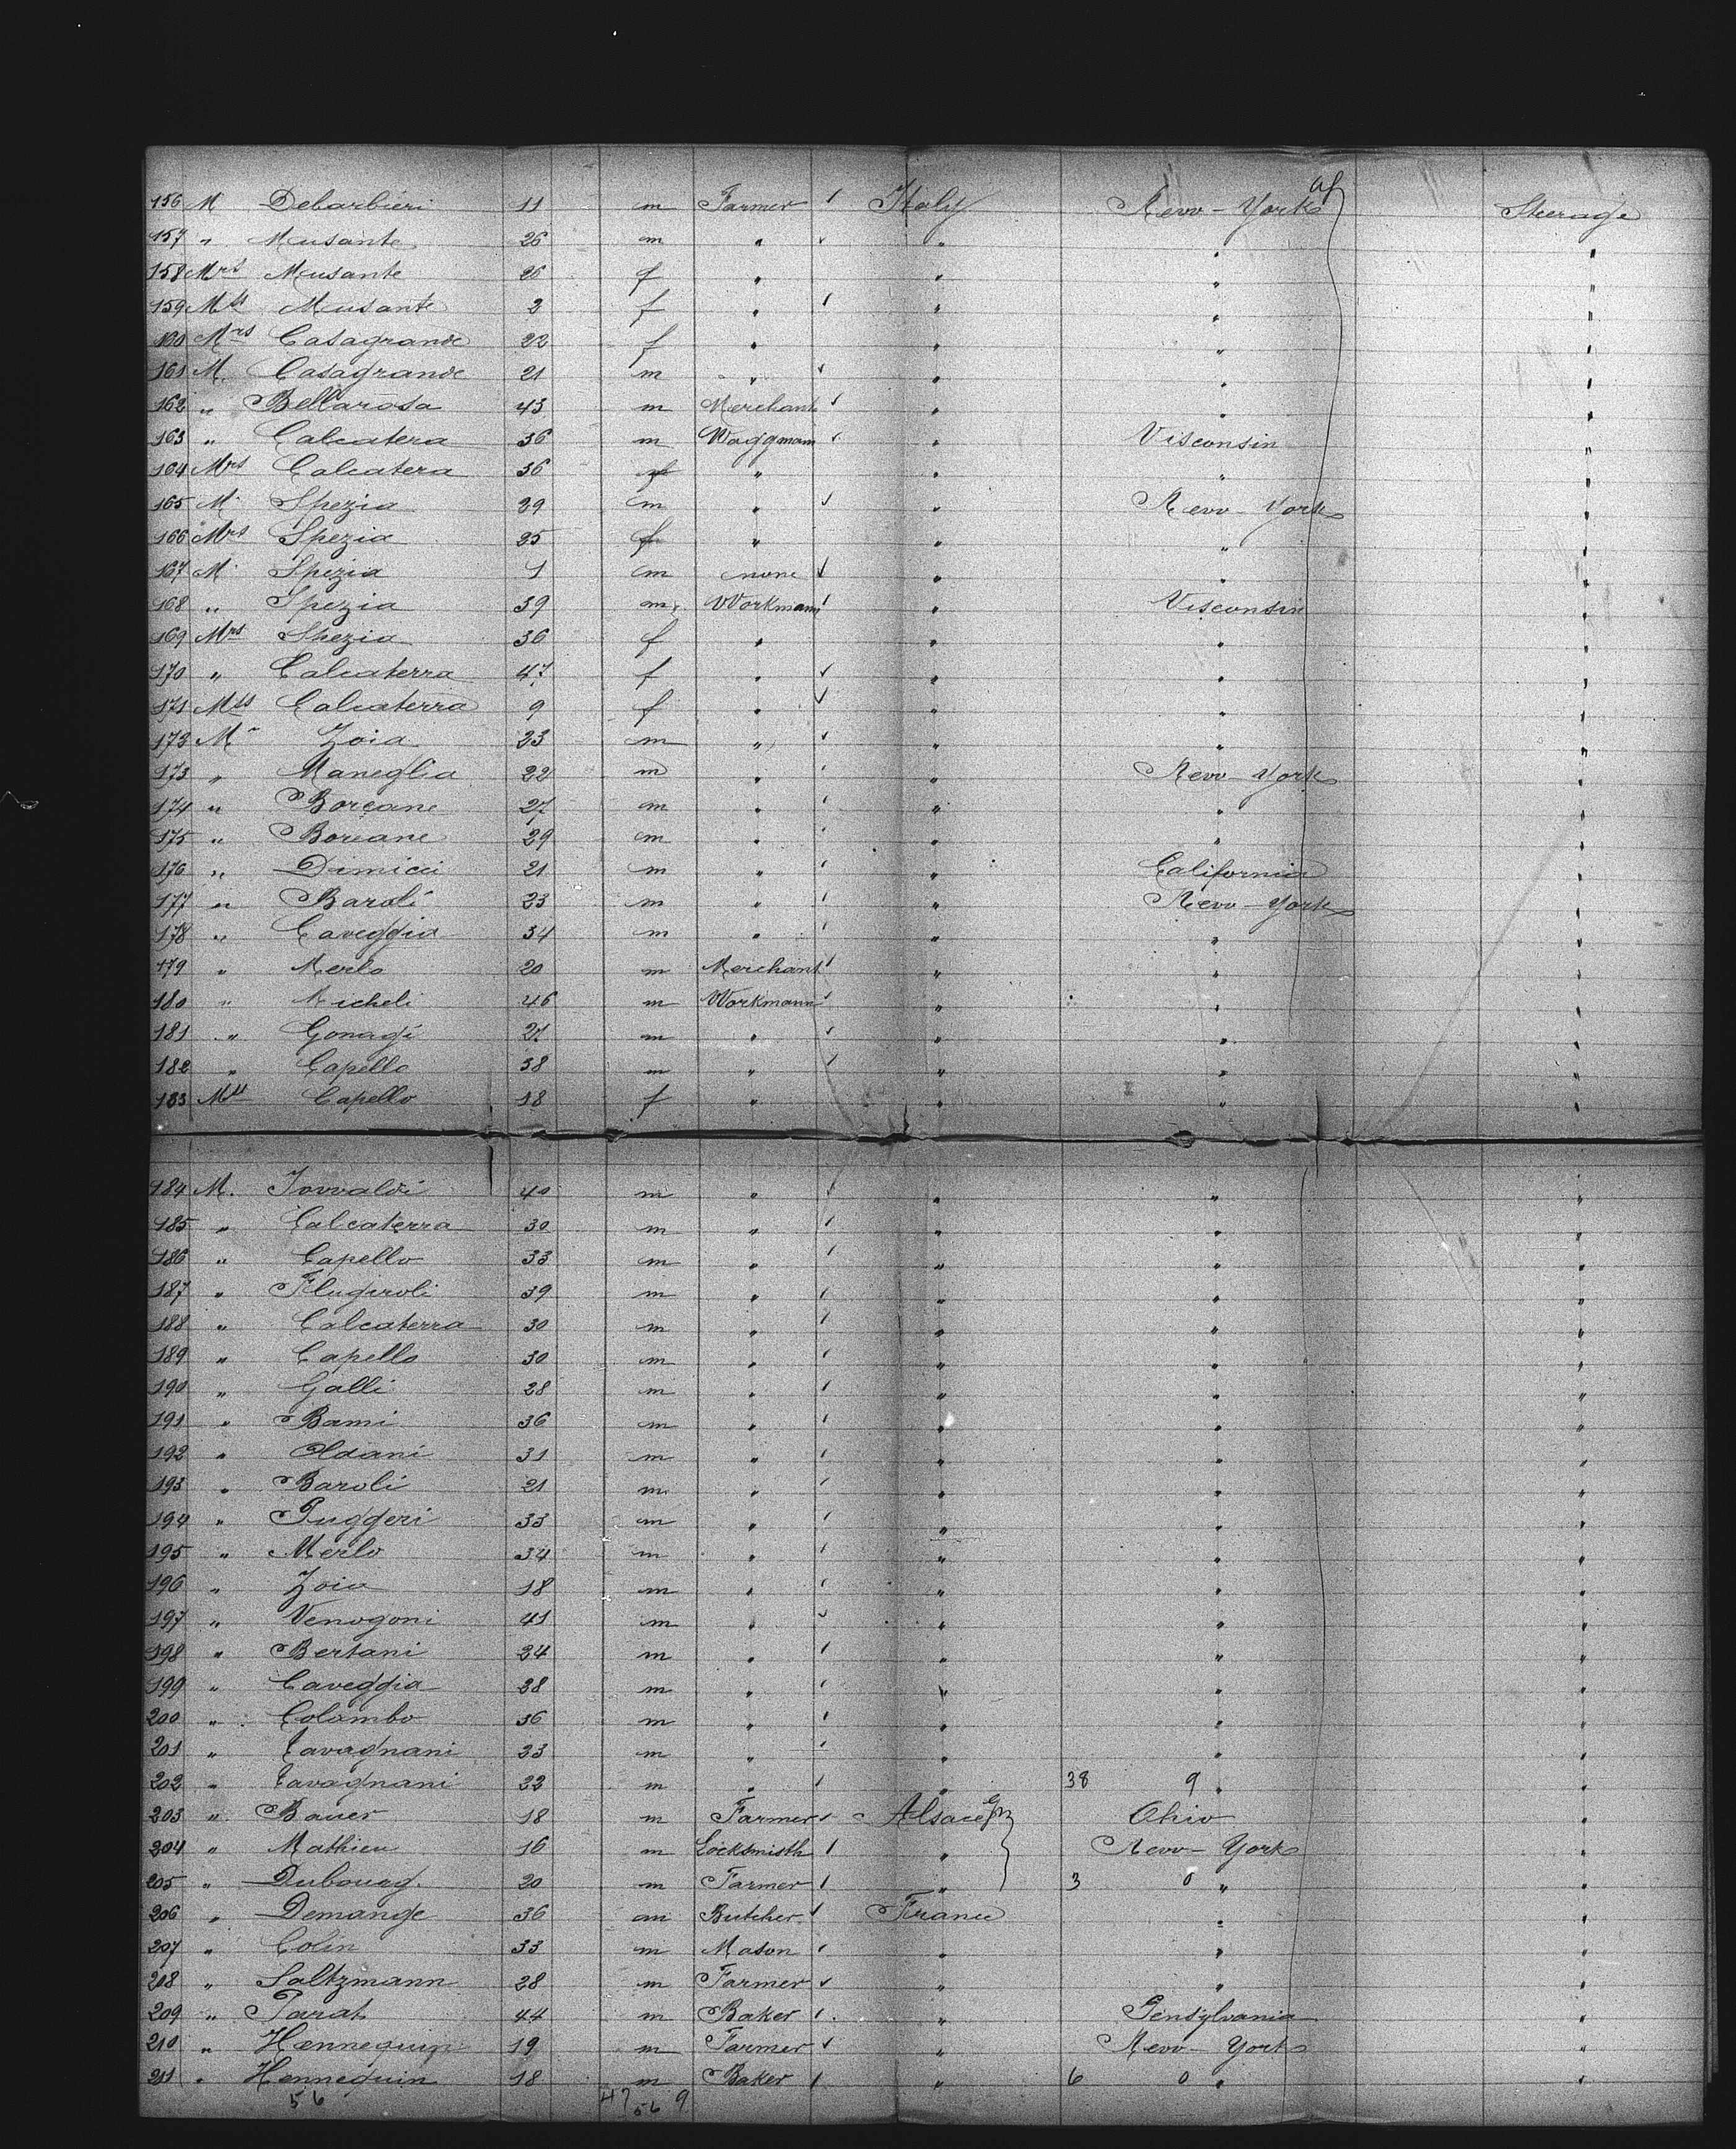 156 M Debarbieri 11 m Farmer Italy New-York Steerage
157 " Musante 26 m " " " "
158 Mrs Musante 26 f " " " "
159 Mlle Musante 2 f " " " "
160 Mrs Casagrande 22 f " " " "
161 M. Casagrande 21 m " " " "
162 " Bellarosa 43 m Merchant " " "
163 " Calcatera 36 m Waggmann " Visconsin "
164 Mrs Calcatera 36 f " " " "
165 M. Spezia 29 m " " New-York "
166 Mrs Spezia 25 f " " " "
167 M. Spezia 1 m none " " "
168 " Spezia 39 m. Workmann " Visconsin "
169 Mrs Spezia 36 f " " " "
170 " Calcaterra 47 f " " " "
171 Mlle Calcaterra 9 f " " " "
173 M. Zoia 23 m " " " "
173 " Maneglia 22 m " " New-York "
174 " Borcane 27 m " " " "
175 " Borcane 29 m " " " "
176 " Dimicci 21 m " " California "
177 " Baroli 23 m " " New-York "
178 " Caveggia 34 m " " " "
179 " Merlo 20 m Merchant " " "
180 " Micheli 46 m Workmann " " "
181 " Gonagi 27 m " " " "
182 " Capello 38 m " " " "
183 Mlle Capello 18 f " " " "
184 M. 40 m " " " "
185 " Calcaterra 30 m " " " "
186 " Capello 33 m " " " "
187 " Flugiroli 39 m " " " "
188 " Calcaterra 30 m " " " "
189 " Capello 30 m " " " "
190 " Galli 28 m " " " "
191 " Bami 36 m " " " "
192 " Oldani 31 m " " " "
193 " Baroli 21 m " " " "
194 " Puggeri 33 m " " " "
195 " Merlo 34 m " " " "
196 " Zoia 18 m " " " "
197 " Venogoni 41 m " " " "
198 " Bertani 24 m " " " "
199 " Caveggia 28 m " " " "
200 " Colombo 36 m " " " "
201 " Cavagnani 33 m " " " "
202 " Cavagnani 22 m " " 38 9 " "
203 " Bauer 18 m Farmer Alsace Ohio "
204 " Mathieu 16 m Locksmisth " New-York "
205 " Dubouag. 20 m Farmer " 3 0 " "
206 " Demange 36 m Butcher France " "
207 " Colin 33 m Mason " " "
208 " Saltzmann 28 m Farmer " " "
209 " Parat 44 m Baker " Pensylvania "
210 " Hennequin 19 m Farmer " New-York "
211 " Hennequin 18 m Baker " 6 0 " "
56 47 56 9